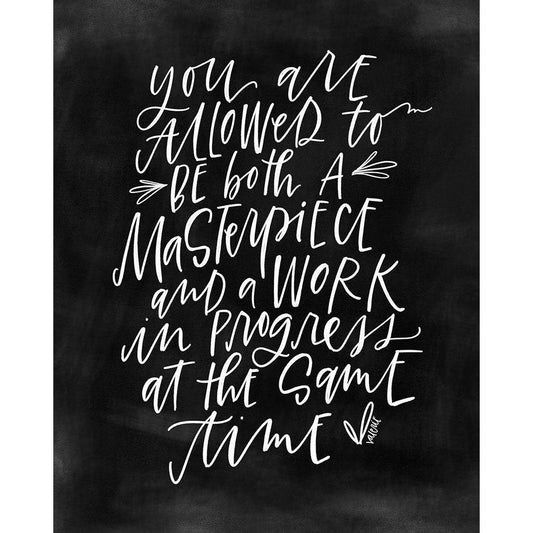 you are
ALLOWED to
BE both A
MaSTERpiECE
and a WORK
in PROgRESS
at the SamE
time
valerie